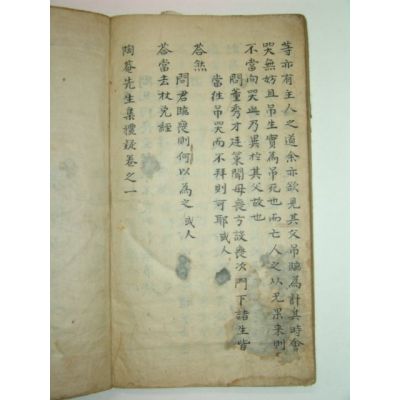 等亦有主人之道余亦欲見其父吊臨為計其時會
哭無妨且吊生實為吊死也而亡人之以兄果來則
不當向哭與乃異於其父故也
問董秀才廷策聞母喪方設喪次門下諸生皆
當往吊哭而不拜則可耶或人
答然
問君臨喪則何以為之或人
答當去杖免絰
陶菴先生集禮疑卷之一